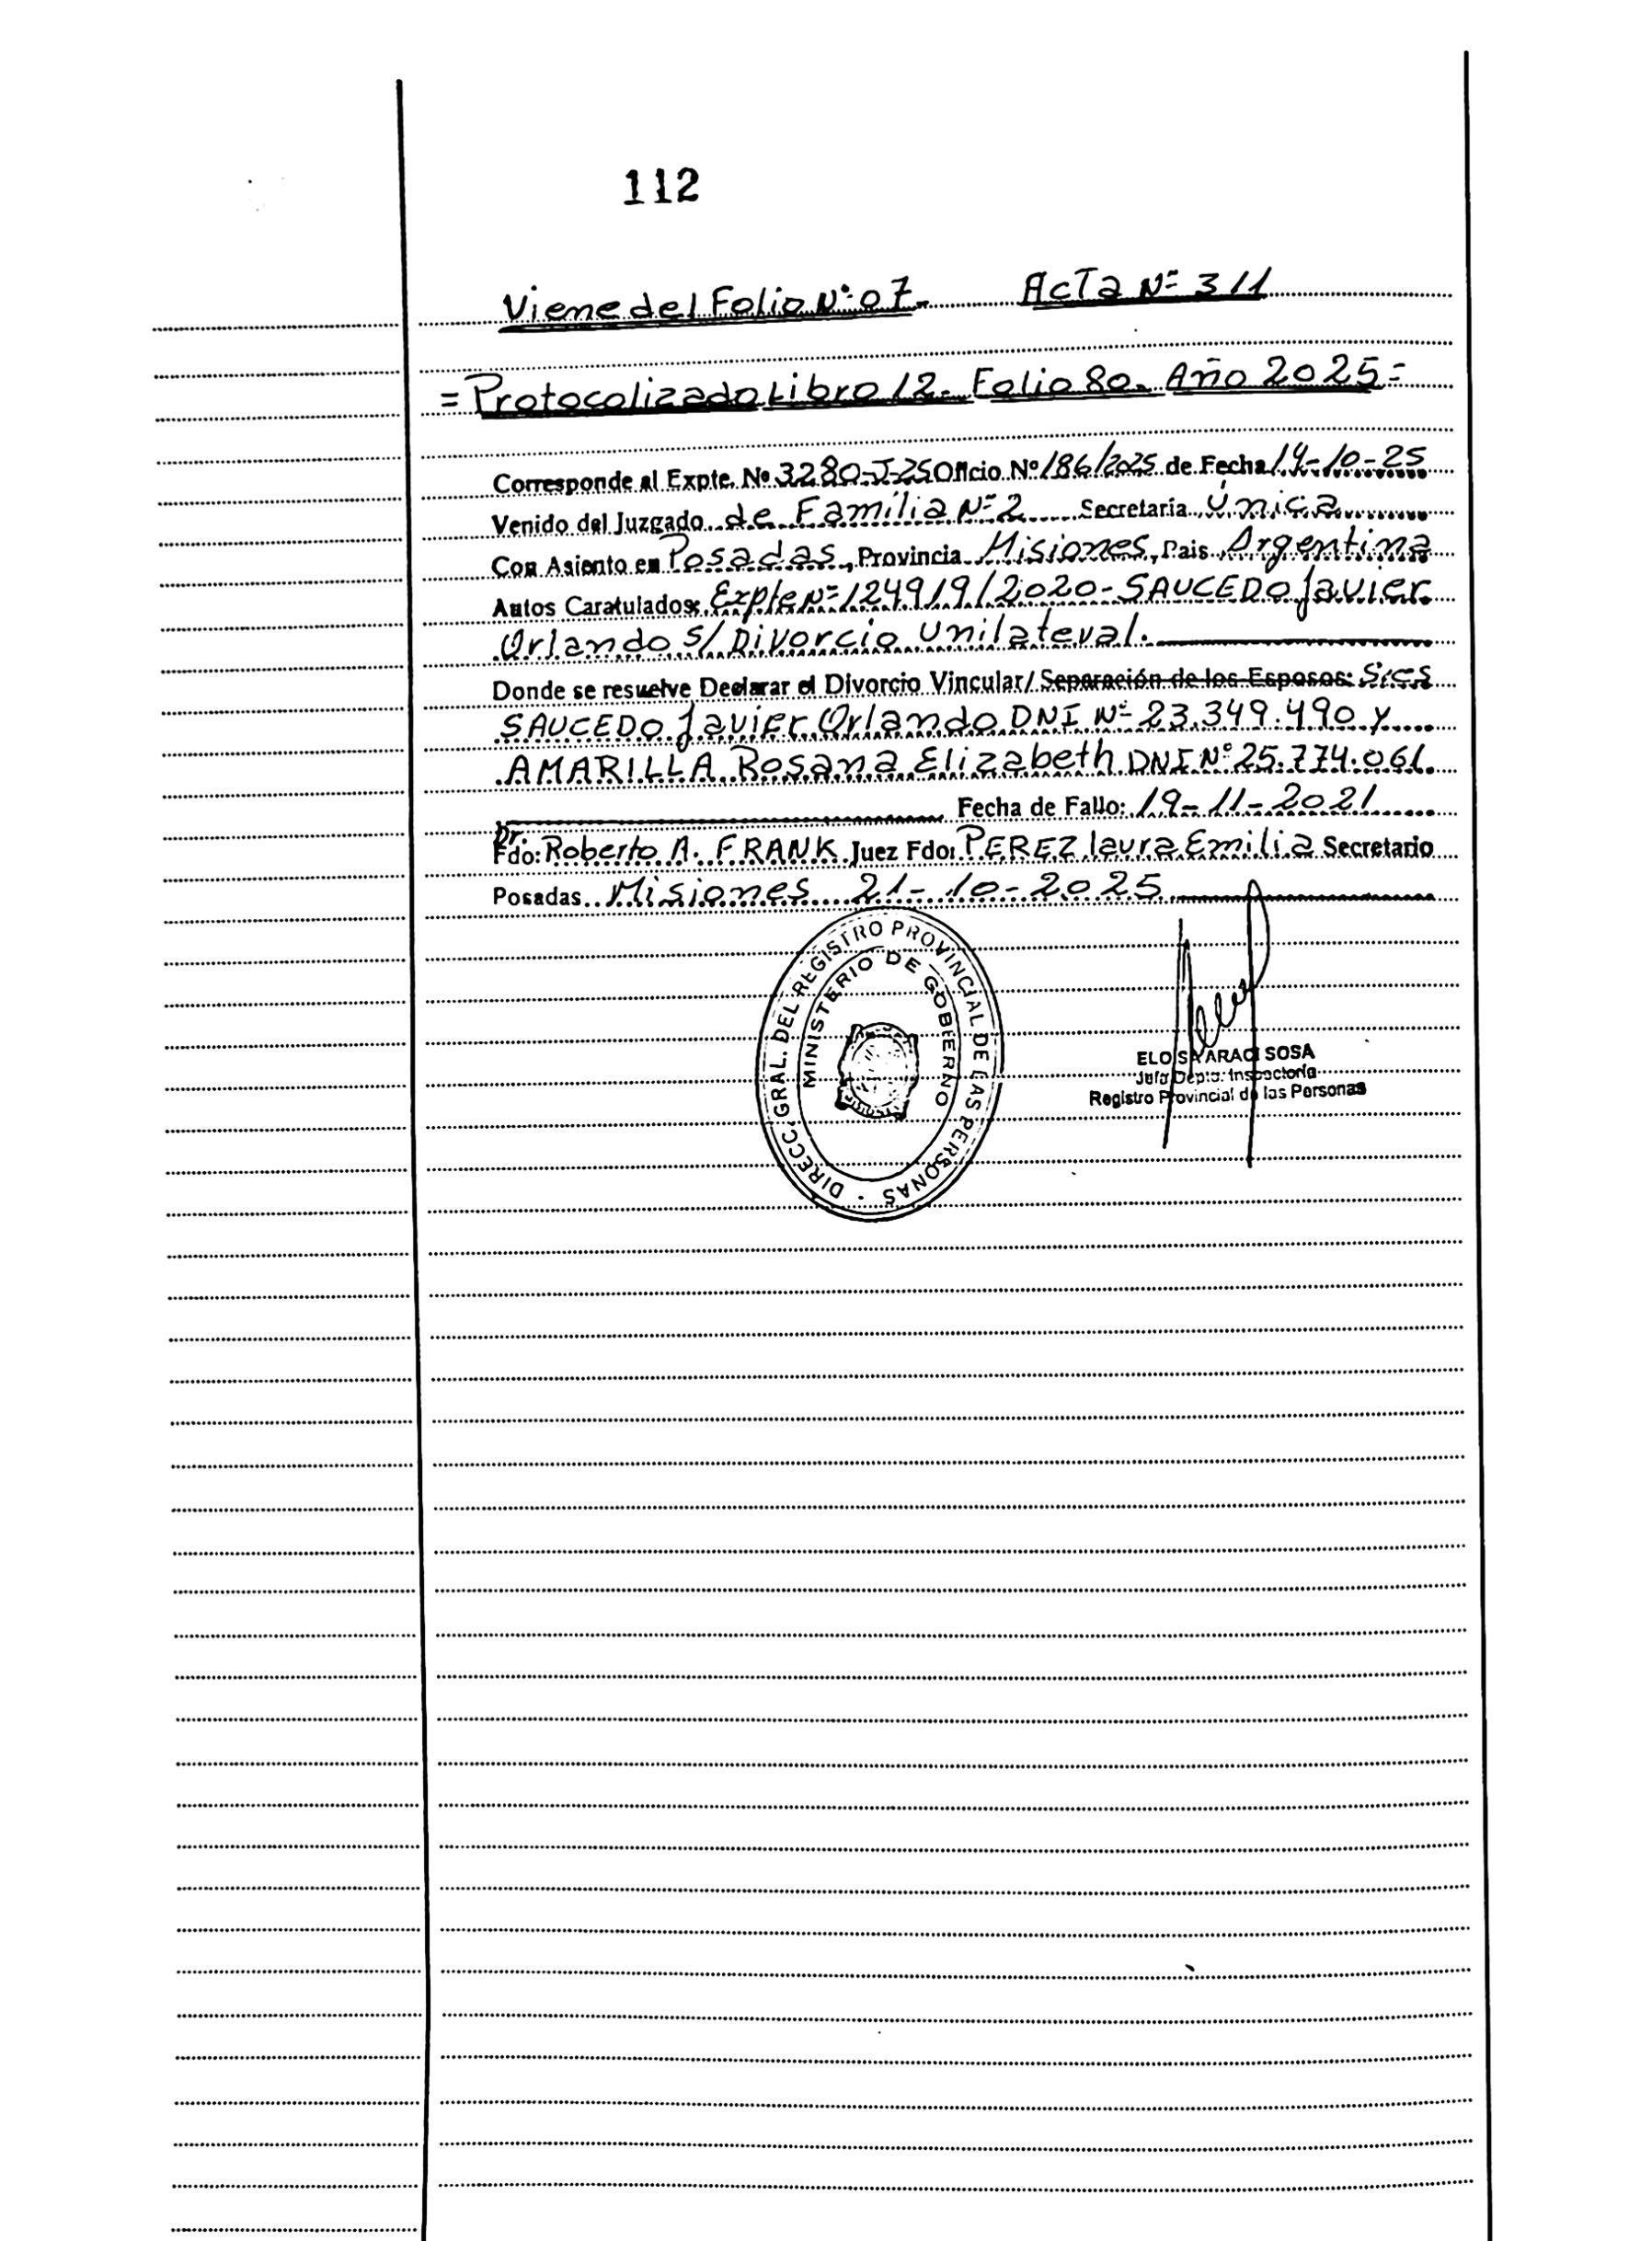 112
Viene del Folio Nº 07. Acta Nº 311
= Protocolizado Libro 12. Folio 80. Año 2025 =
Corresponde al Expte. Nº 3280-J-25 Oficio Nº 186/2025 de Fecha 14-10-25
Venido del Juzgado de Familia Nº 2 Secretaría Única
Con Asiento en Posadas, Provincia Misiones, Pais Argentina
Autos Caratulados: Expte Nº 124919/2020 - SAUCEDO Javier
Orlando s/ Divorcio Unilateral.
Donde se resuelve Declarar el Divorcio Vincular/ Separación de los Esposos: Sres
SAUCEDO Javier Orlando DNI Nº 23.349.490 y
AMARILLA Rosana Elizabeth DNI Nº 25.774.061.
Fecha de Fallo: 19-11-2021
Dr.
Fdo: Roberto A. FRANK Juez Fdo: PEREZ laura Emilia Secretario
Posadas Misiones 21-10-2025
DIRECC. GRAL. DEL REGISTRO PROVINCIAL DE LAS PERSONAS
MINISTERIO DE GOBIERNO
ELOISA ARACI SOSA
Jefa Depto. Inspectoría
Registro Provincial de las Personas